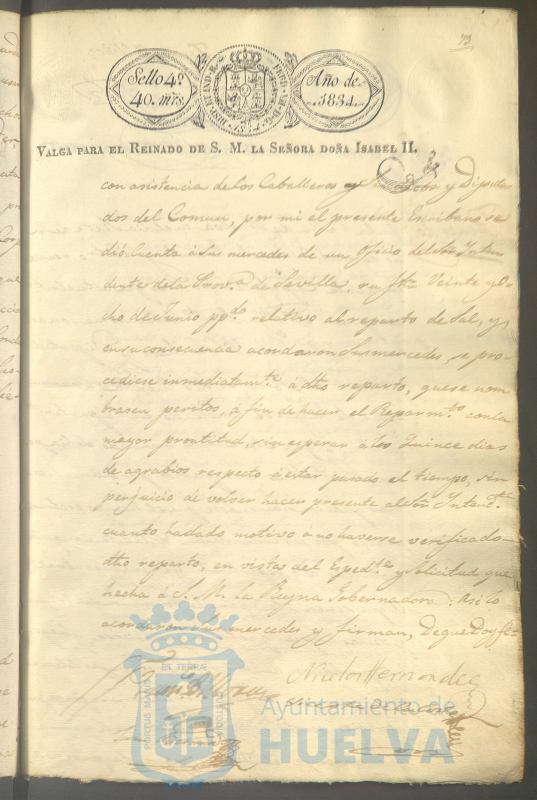 73
Sello 4º
40. mrs.
HISP. ET IND. R. FERD. VII D. G.
1834
Año de
1834.
VALGA PARA EL REINADO DE S. M. LA SEÑORA DOÑA ISABEL II.
con asistencia de los Caballeros y Diputa
dos del Comun, por mi el presente Escribano se
dió Cuenta á Sus mercedes de un Oficio del Sor. Inten
dente dela Prov.ª de Sevilla, su fha. Veinte y O
cho de Junio pp.do relativo al reparto de Sal, y
en su consecuencia acordaron Sus mercedes, se pro-
cediese inmediatam.te á dho reparto, que se nom
brasen peritos, á fin de hacer el Reparm.to con la
mayor prontitud, sin esperar á los Quince dias
de agrabios respecto á estar parado el tiempo, sin
perjuicio de volver hacer presente al Sor. Intend.te
cuanto ha dado motivo á no haverse verificado
dho reparto, en vista del Exped.te y Solicitud que
hecha á S. M. la Reyna Gobernadora: Asi lo
acordaron Sus mercedes y firman, de que Doy fe=
Nicolas Hernandez
PORTUS MARIS ET TERRÆ CUSTODIA
Ayuntamiento de
HUELVA